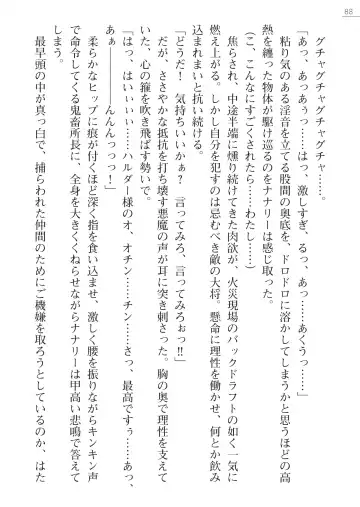 88
グチャグチャグチャグチャグチャ……。
「あっ、あっあぅっ……はっ、激しすぎ、るっ、あっ……あくうっ……」
粘り気のある淫音を立てる股間の奥底を、ドロドロに溶かしてしまうかと思うほどの高
熱を纏った物体が駆け巡るのをナナリーは感じ取った。
(こ、こんなにすごくされたら……わたし……)
焦らされ、中途半端に燻り続けてきた肉欲が、火災現場のバックドラフトの如く一気に
燃え上がる。しかし自分を犯すのは忌むべき敵の大将。懸命に理性を働かせ、何とか飲み
込まれまいと抗い続ける。
「どうだ！　気持ちいいかぁ？　言ってみろ、言ってみろぉっ!!」
が、ささやかな抵抗を打ち壊す悪魔の声が耳に突き刺さった。胸の奥で理性を支えて
いた、心の箍を吹き飛ばす勢いで。
「はっ、はいいぃぃ……ハルダー様のオ、オチン……チン……さっ、最高です……あっ、
あぁっ――んんんっっっ！」
柔らかなヒップに痕が付くほど深く指を食い込ませ、激しく腰を振りながらキンキン声
で命令してくる鬼畜所長に、全身を大きくくねらせながらナナリーは甲高い悲鳴で答えて
しまう。
最早頭の中が真っ白で、捕らわれた仲間のためにご機嫌を取ろうとしているのか、はた